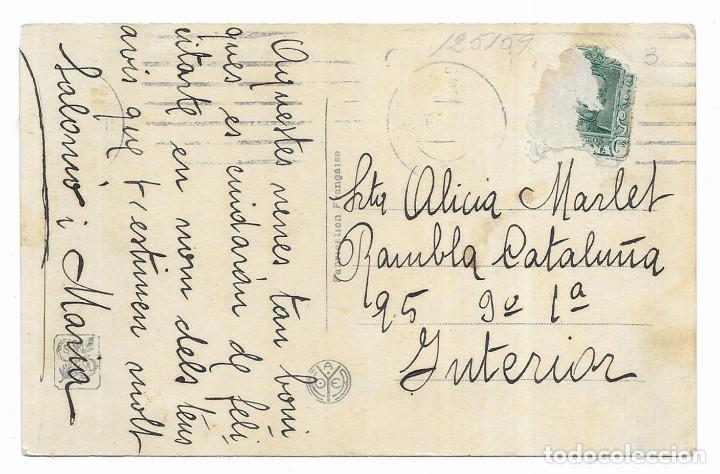 Aquestes nenes tan boni-
ques es cuidarán de feli-
citarte en nom dels teus
avis que t'estimen molt
Salomó i Maria
Fabrication Française
125159
3
Srta Alicia Marlet
Rambla Cataluña
95 9o 1ª
Interior
todocoleccion.net